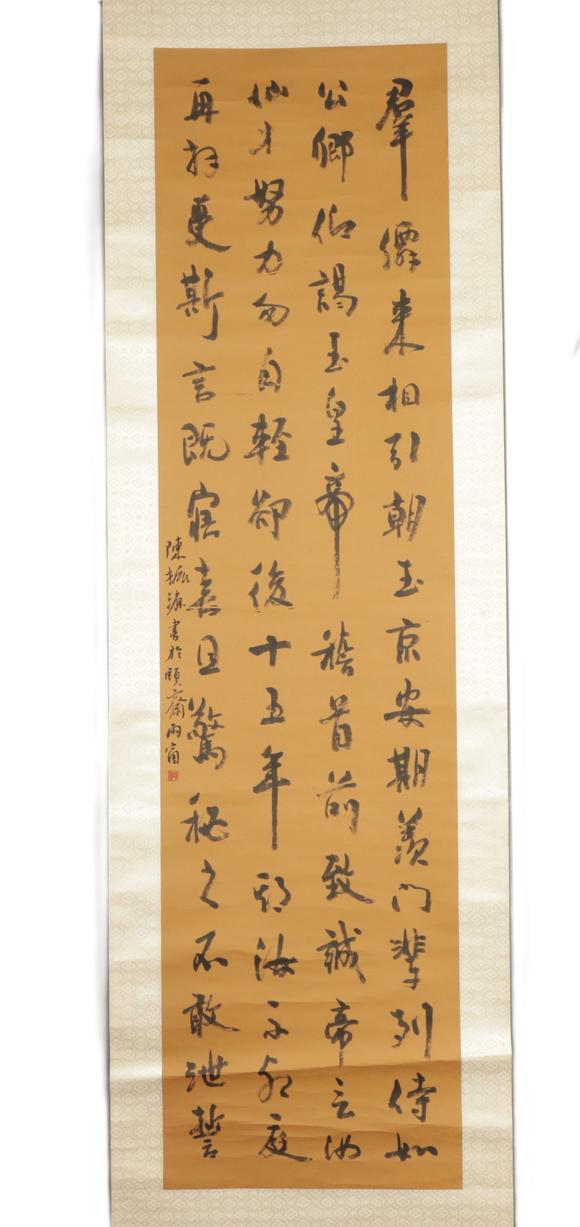 羣僊來相引朝玉京安期羨門輩列侍如
公卿仰謁玉皇帝稽首前致誠帝言汝
仙才努力勿自輕卻後十五年期汝不死庭
再拜受斯言既寤喜且驚秘之不敢泄誓
陳振濂書於頤齋雨窗